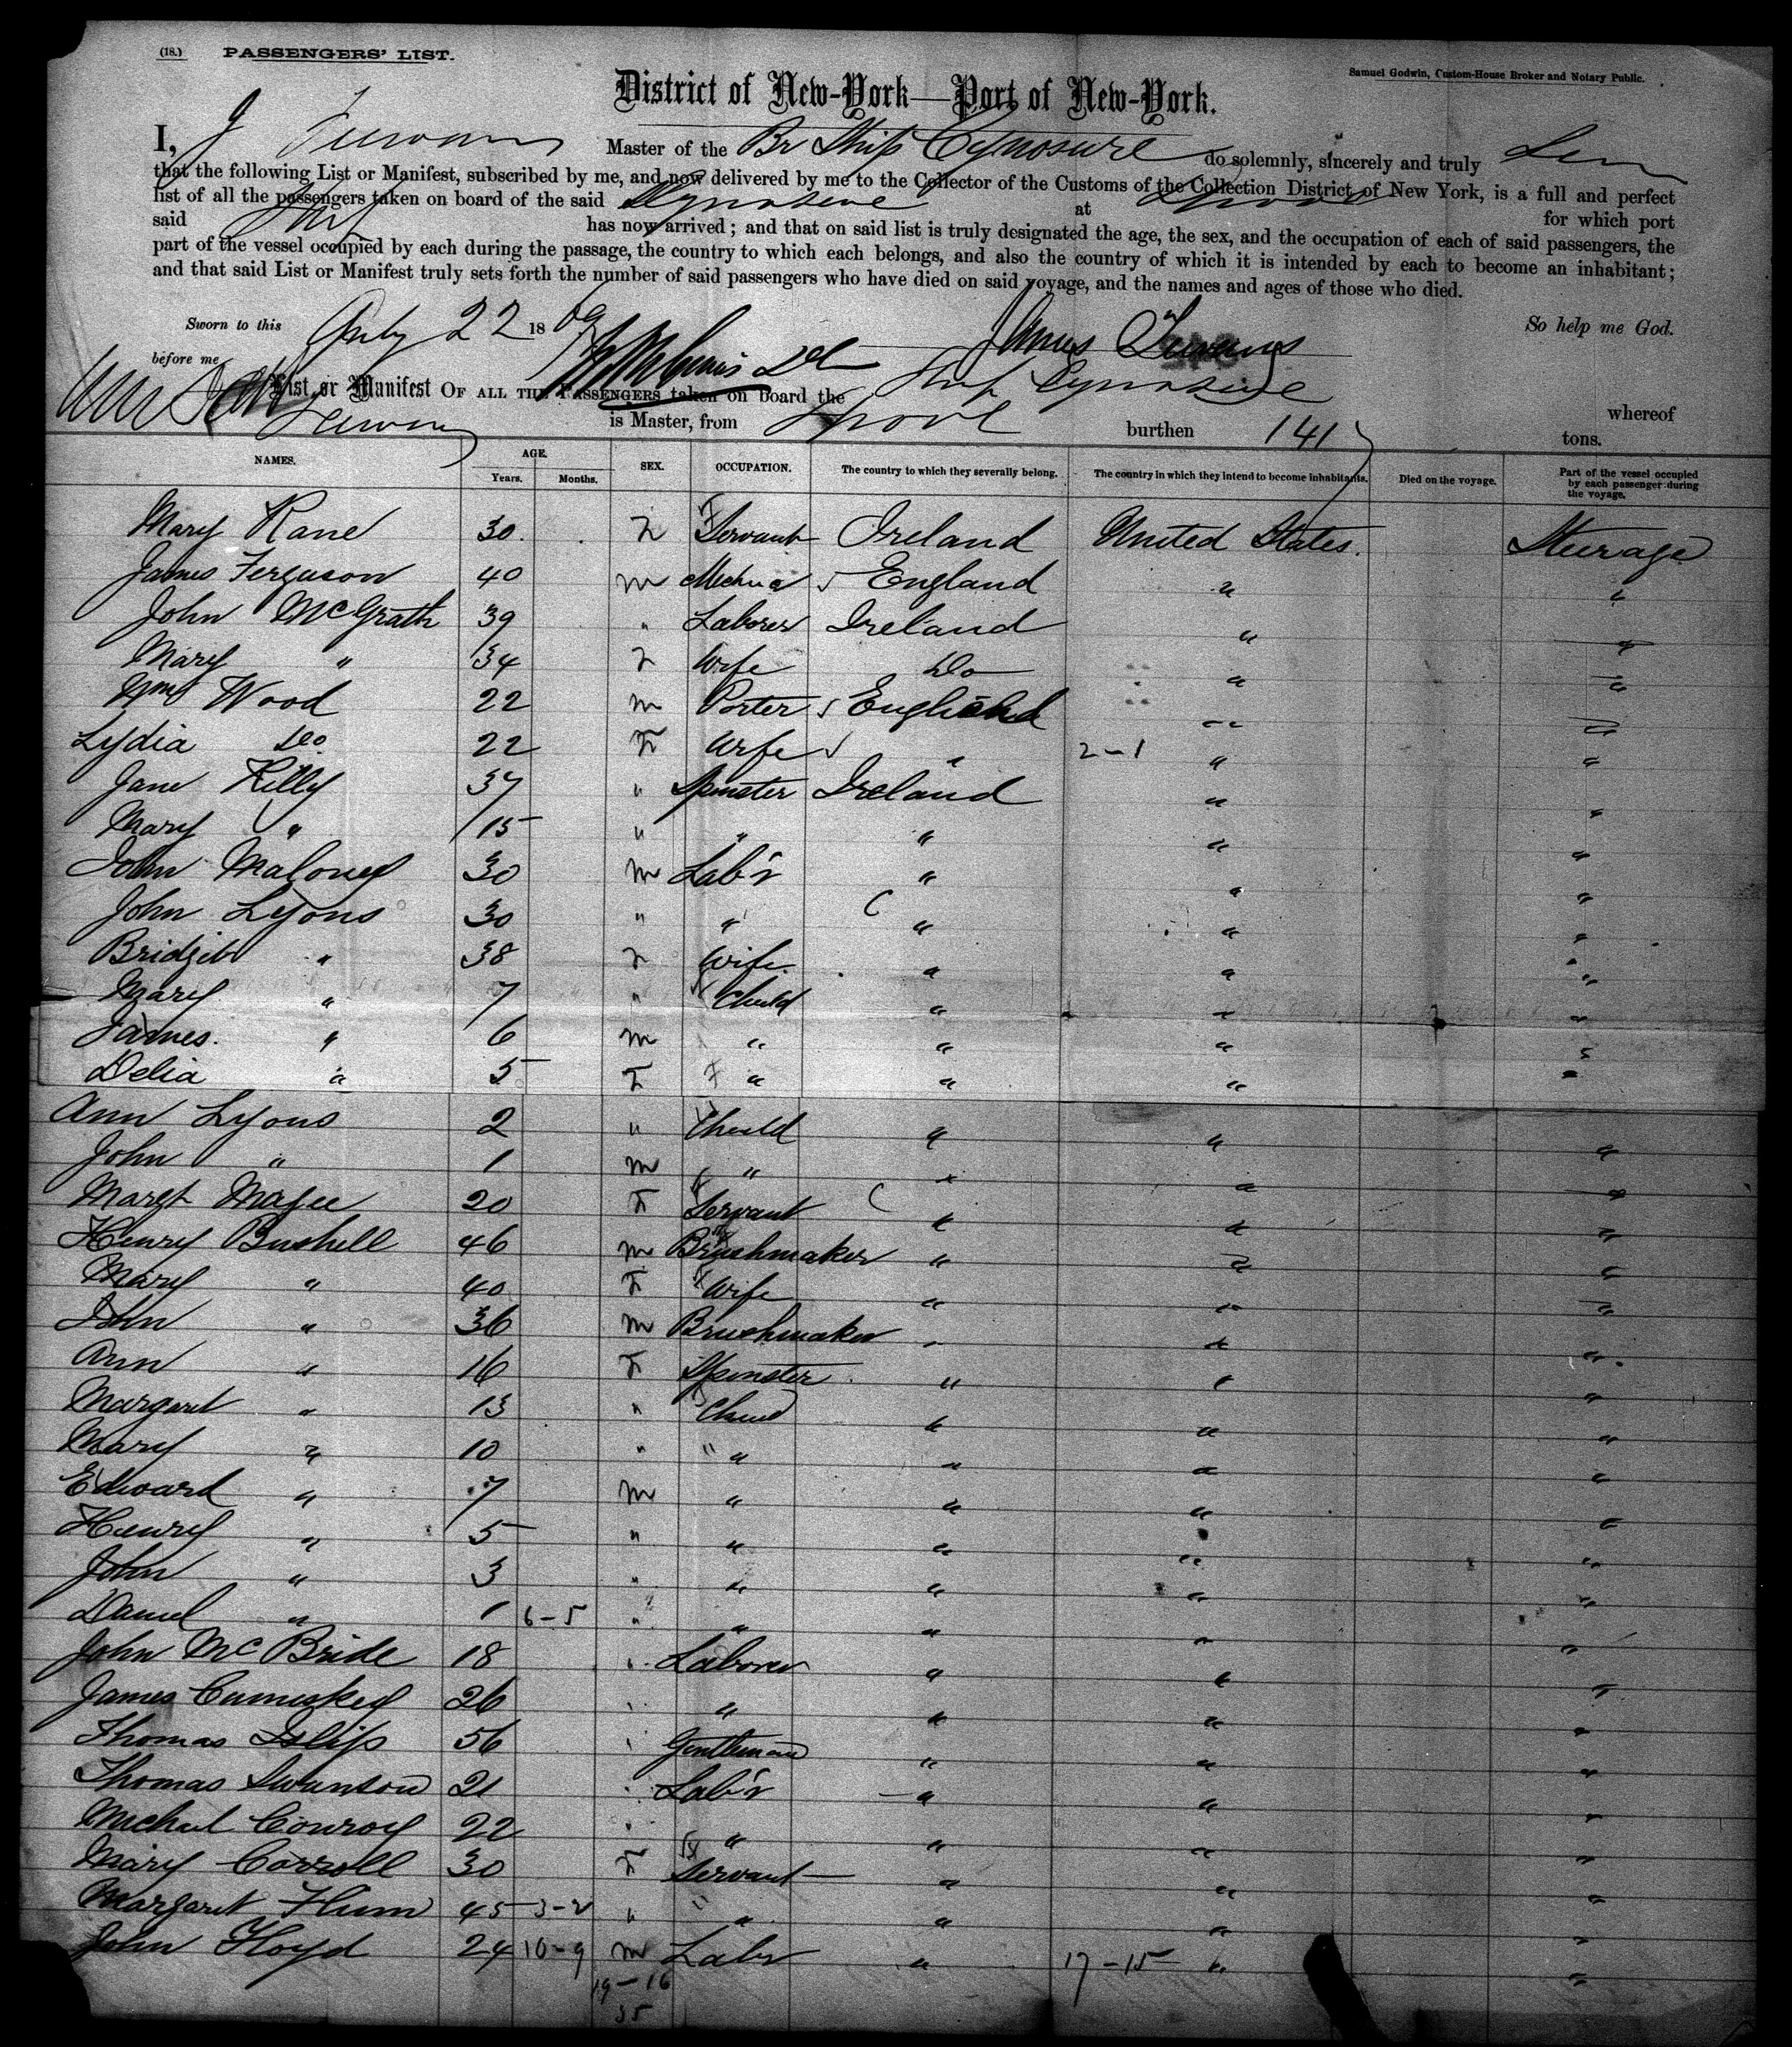 (18.) PASSENGERS' LIST.
Samuel Godwin, Custom-House Broker and Notary Public.
District of New-York—Port of New-York.
I, J Master of the Br Ship Cynosure do solemnly, sincerely and truly
that the following List or Manifest, subscribed by me, and now delivered by me to the Collector of the Customs of the Collection District of New York, is a full and perfect
list of all the passengers taken on board of the said Cynosure at Lpool for which port
said Ship has now arrived; and that on said list is truly designated the age, the sex, and the occupation of each of said passengers, the
part of the vessel occupied by each during the passage, the country to which each belongs, and also the country of which it is intended by each to become an inhabitant;
and that said List or Manifest truly sets forth the number of said passengers who have died on said voyage, and the names and ages of those who died.
Sworn to this July 22 1869 So help me God.
before me James
List or Manifest OF ALL THE PASSENGERS taken on board the Ship Cynosure whereof
is Master, from Lpool burthen 141 tons.
NAMES. AGE. Years. Months. SEX. OCCUPATION. The country to which they severally belong. The country in which they intend to become inhabitants. Died on the voyage. Part of the vessel occupied by each passenger during the voyage.
Mary Kane 30 F Servant Ireland United States. Steerage
James Ferguson 40 m England " "
John McGrath 39 " Laborer Ireland " "
Mary " 34 F Wife Do " "
Wm Wood 22 m Porter England " "
Lydia Do 22 F Wife " 2-1 " "
Jane Killy 37 " Spinster Ireland " "
Mary " 15 " " " " "
John Maloney 30 m Lab'r " " "
John Lyons 30 " " " " "
Bridget " 38 F Wife " " "
Mary " 7 " Child " " "
James " 6 m " " " "
Delia " 5 F " " " "
Ann Lyons 2 " Child " " "
John " 1 m " " " "
Margt Magee 20 F Servant " " "
Henry Bushell 46 m Brushmaker " " "
Mary " 40 F Wife " " "
John " 36 m Brushmaker " " "
Ann " 16 F Spinster " " "
Margaret " 13 " Child " " "
Mary " 10 " " " " "
Edward " 7 m " " " "
Henry " 5 " " " " "
John " 3 " " " " "
Daniel " 1 6-5 " " " " "
John McBride 18 " Laborer " " "
James Cumiskey 26 " " " " "
Thomas Islip 56 " Gentleman " " "
Thomas Swanton 21 " Lab'r " " "
Micheal Conroy 22 " " " " "
Mary Carroll 30 F Servant " " "
Margaret 45 3-2 " " " " "
John Floyd 24 10-9 m Labr " 17-15 " "
19-16
35